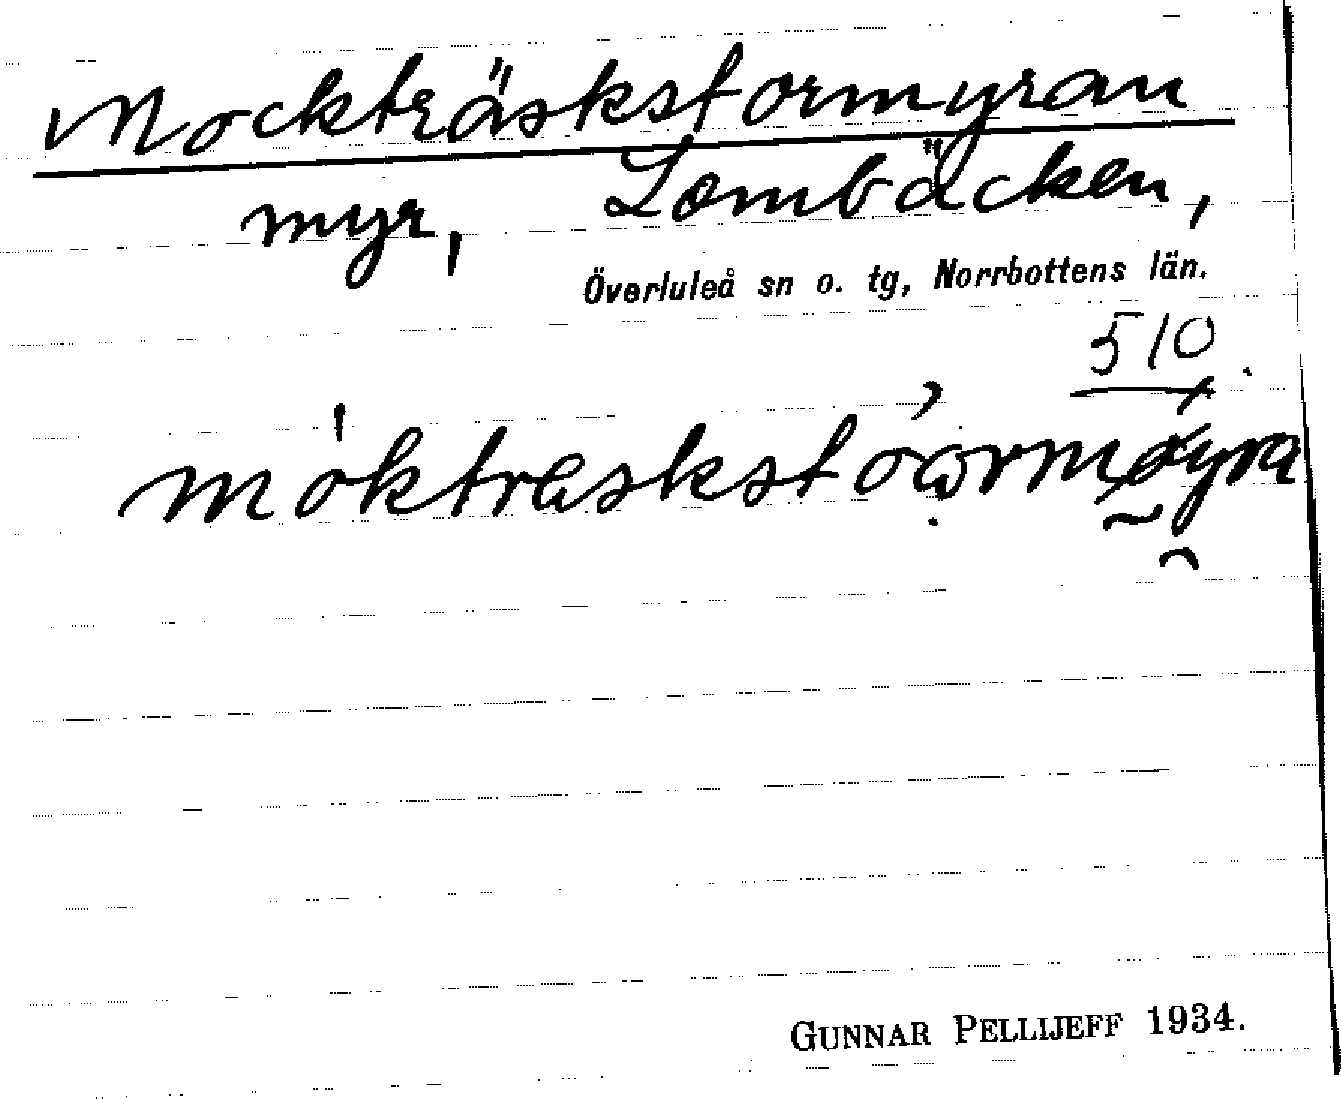 Mockträskstormyran
myr, Lombäcken,
Överluleå sn o. tg, Norrbottens län.
510
GUNNAR PELLIJEFF 1934.